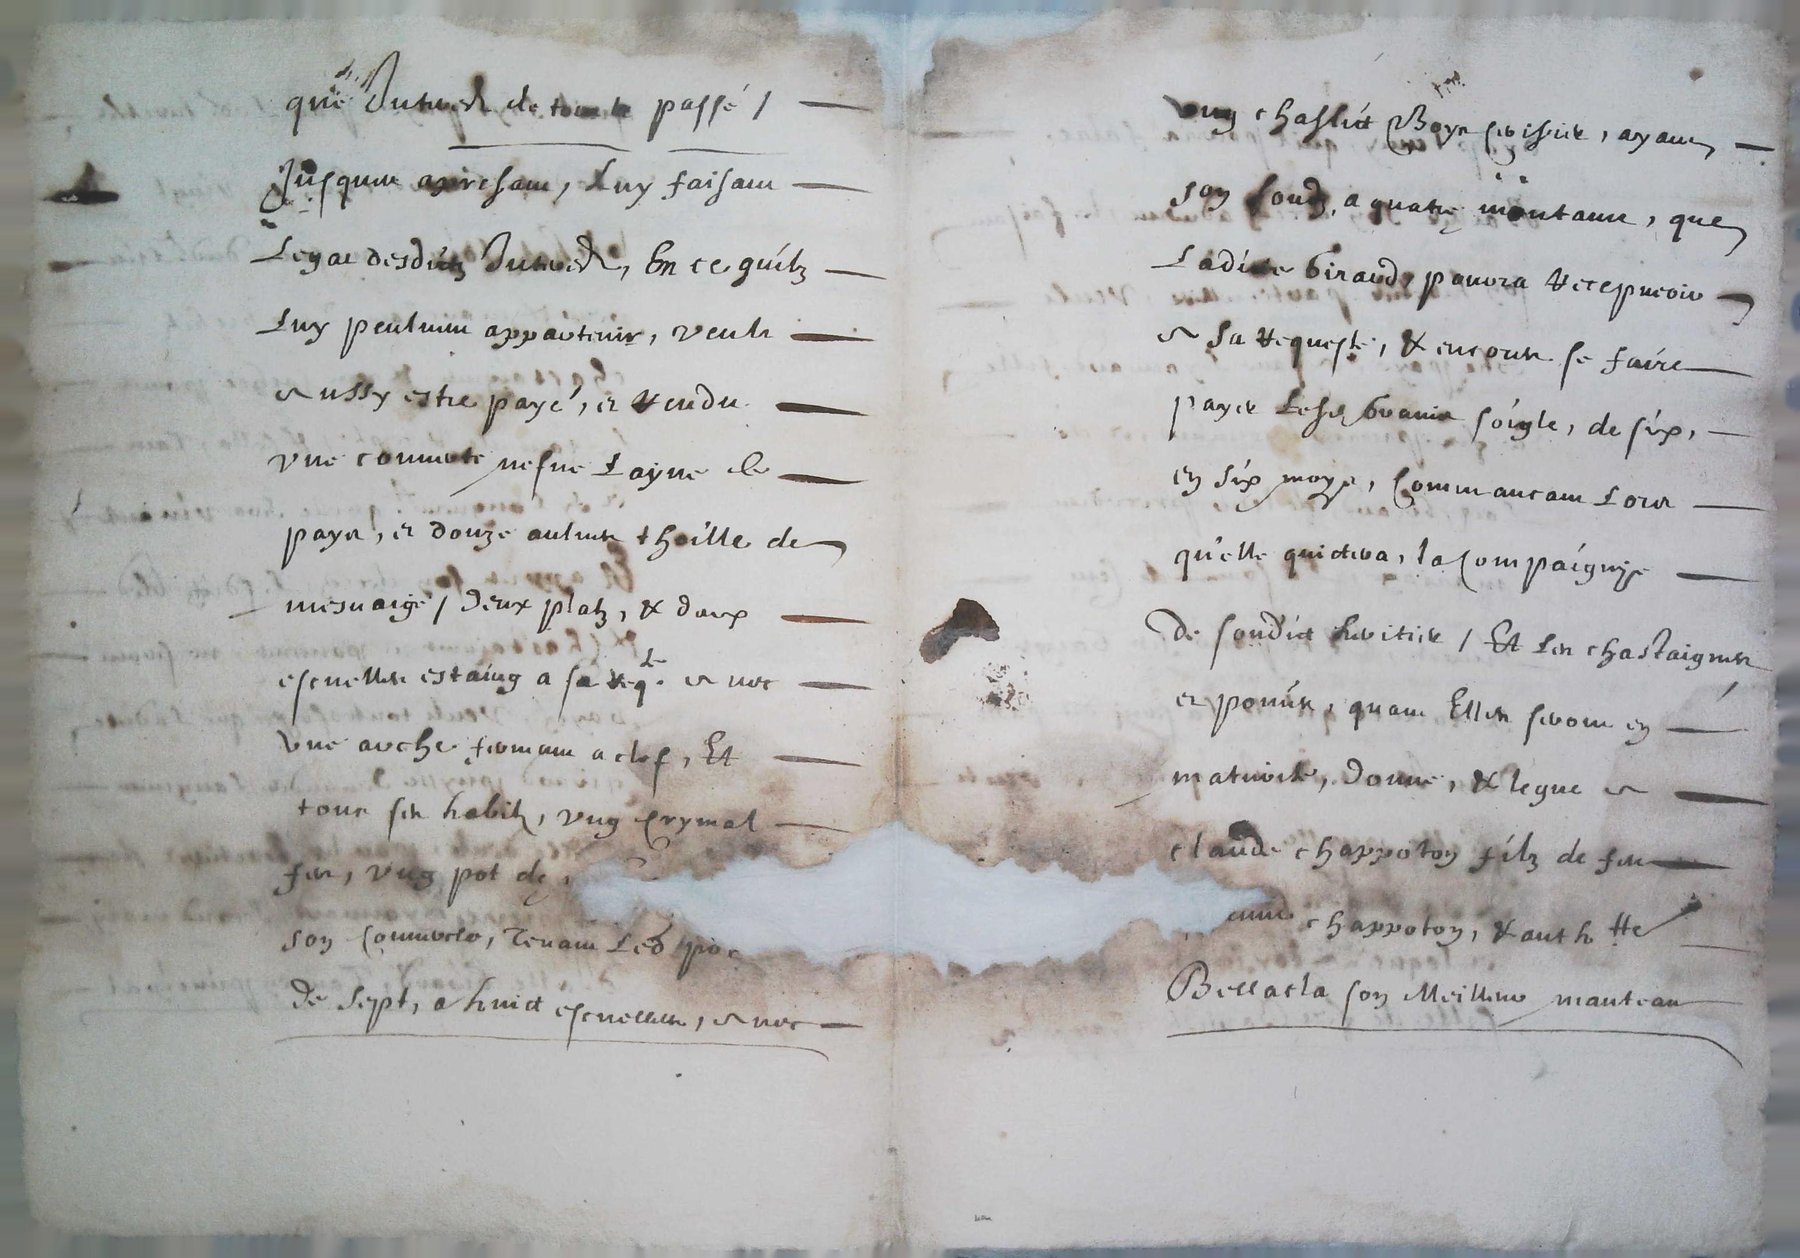 que Interest de tout le passé /
Jusques apresant, luy faisant
Legat desdictz Interest, En ce quilz
Luy peuluent appartenir, veult
aussy estre payé, et rendu
vne couuerte nefue Layne de
payr, et douze aulnes thoille de
mesnaige / deux platz, & deux
escuelles estaing a sa reqte auec
vne arche fermant a clef, Et
tous ses habitz, vng crymal
fer, vng pot de
son couuercle, Tenant Led pot
de sept, a huict escuelles, auec
vng chaslict Boys serisier, ayant
son fondz, a quatre montant, que
Ladicte Giraud, pourra recepuoir
a sa requeste, & encores se faire
payer Lesd grains soigle, de six,
en six moys, Commancant Lors
quelle quictera, la Compaignye
de sondict heritier / Et Les chastaignes
et pomes, quant Elles seront en
maturite, donne, & legue a
claude chappoton filz de feu
chappoton, & anthtte
Bellacla son Meilleur manteau